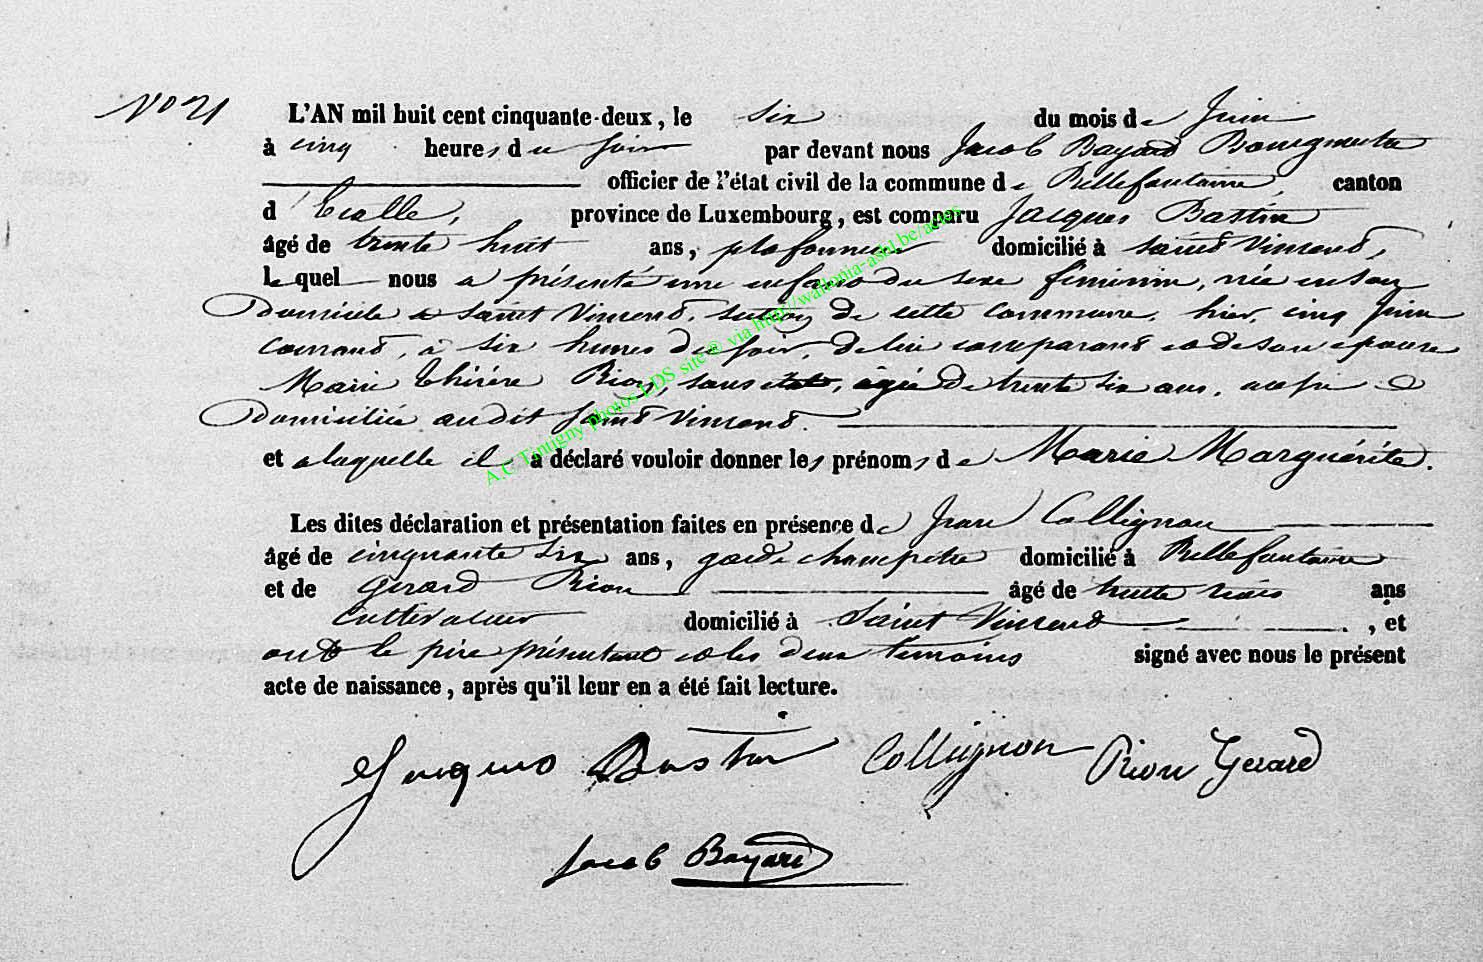 No 21
L'AN mil huit cent cinquante-deux, le six du mois de Juin
à cinq heures du soir par devant nous Jacob Bayard Bourgmestre
officier de l'état civil de la commune de Bellefontaine, canton
d'Etalle, province de Luxembourg, est comparu Jacques Bastin
âgé de trente huit ans, plafonneur domicilié à Saint Vincent,
lequel nous a présenté une enfant du sexe féminin, née en son
Domicile à Saint Vincent, section de cette commune, hier, cinq Juin
courant, à six heures du soir, de lui comparant et de son épouse
Marie Thérèse Rion, sans état, âgée de trente six ans, avec lui
Domiciliée au dit Saint Vincent.
et a laquelle il a déclaré vouloir donner les prénoms de Marie Marguérite.
Les dites déclaration et présentation faites en présence de Jean Collignon
âgé de cinquante six ans, garde champetre domicilié à Bellefontaine
et de Gerard Rion âgé de trente trois ans
cultivateur domicilié à Saint Vincent, et
ont le père présentant et les deux témoins signé avec nous le présent
acte de naissance, après qu'il leur en a été fait lecture.
Jacques Bastin Collignon Rion Gerard
Jacob Bayard
A.C Tintigny photos LDS site @ via http://wallonia-asbl.be/actes